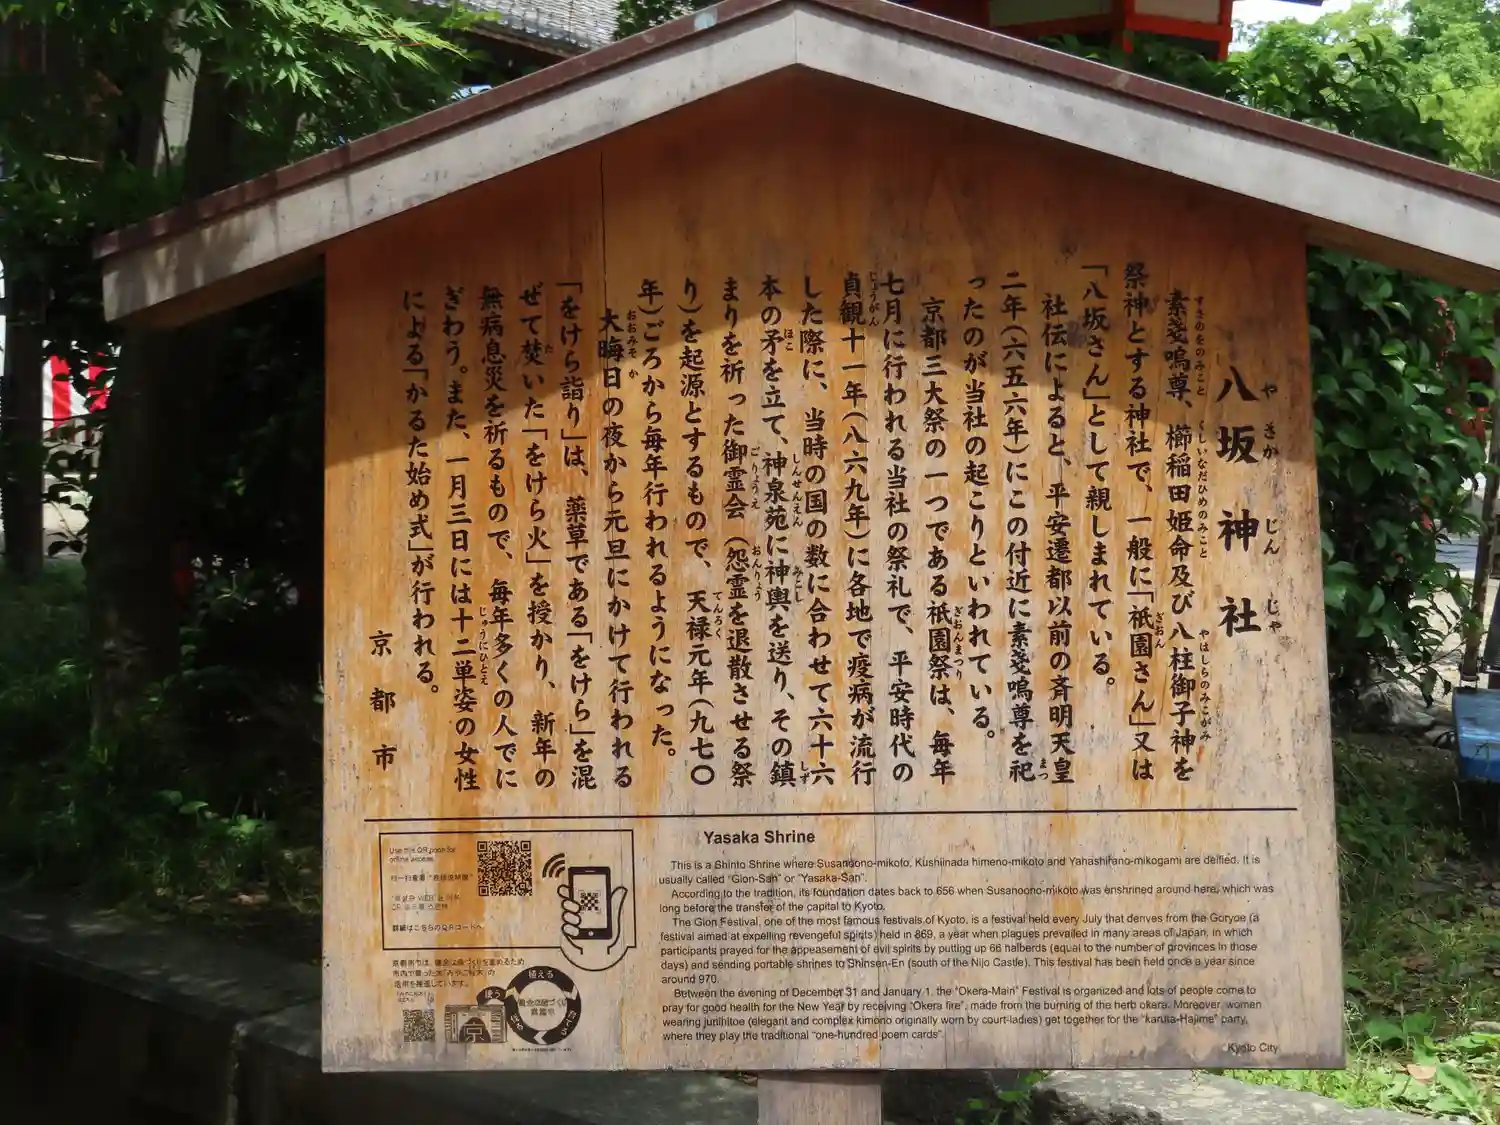 八坂神社
やさかじんじゃ
素戔嗚尊、櫛稲田姫命及び八柱御子神を
すさのをのみこと くしいなだひめのみこと やはしらのみこがみ
祭神とする神社で、一般に「祇園さん」又は
ぎおん
「八坂さん」として親しまれている。
社伝によると、平安遷都以前の斉明天皇
二年(六五六年)にこの付近に素戔嗚尊を祀
まつ
ったのが当社の起こりといわれている。
京都三大祭の一つである祇園祭は、毎年
ぎおんまつり
七月に行われる当社の祭礼で、平安時代の
貞観十一年(八六九年)に各地で疫病が流行
じょうがん
した際に、当時の国の数に合わせて六十六
本の矛を立て、神泉苑に神輿を送り、その鎮
ほこ しんせんえん みこし しず
まりを祈った御霊会(怨霊を退散させる祭
ごりょうえ おんりょう
り)を起源とするもので、天禄元年(九七〇
てんろく
年)ごろから毎年行われるようになった。
大晦日の夜から元旦にかけて行われる
おおみそか
「をけら詣り」は、薬草である「をけら」を混
ぜて焚いた「をけら火」を授かり、新年の
た
無病息災を祈るもので、毎年多くの人でに
ぎわう。また、一月三日には十二単姿の女性
じゅうにひとえ
による「かるた始め式」が行われる。
京都市
Yasaka Shrine
This is a Shinto Shrine where Susanoono-mikoto, Kushiinada himeno-mikoto and Yahashirano-mikogami are deified. It is
usually called "Gion-San" or "Yasaka-San".
According to the tradition, its foundation dates back to 656 when Susanoono-mikoto was enshrined around here, which was
long before the transfer of the capital to Kyoto.
The Gion Festival, one of the most famous festivals of Kyoto, is a festival held every July that derives from the Goryoe (a
festival aimed at expelling revengeful spirits) held in 869, a year when plagues prevailed in many areas of Japan, in which
participants prayed for the appeasement of evil spirits by putting up 66 halberds (equal to the number of provinces in those
days) and sending portable shrines to Shinsen-En (south of the Nijo Castle). This festival has been held once a year since
around 970.
Between the evening of December 31 and January 1, the "Okera-Mairi" Festival is organized and lots of people come to
pray for good health for the New Year by receiving "Okera fire", made from the burning of the herb okera. Moreover, women
wearing junihitoe (elegant and complex kimono originally worn by court-ladies) get together for the "karuta-Hajime" party,
where they play the traditional "one-hundred poem cards".
Kyoto City
Use this QR code for
online access.
詳細はこちらのQRコードへ
植える
京